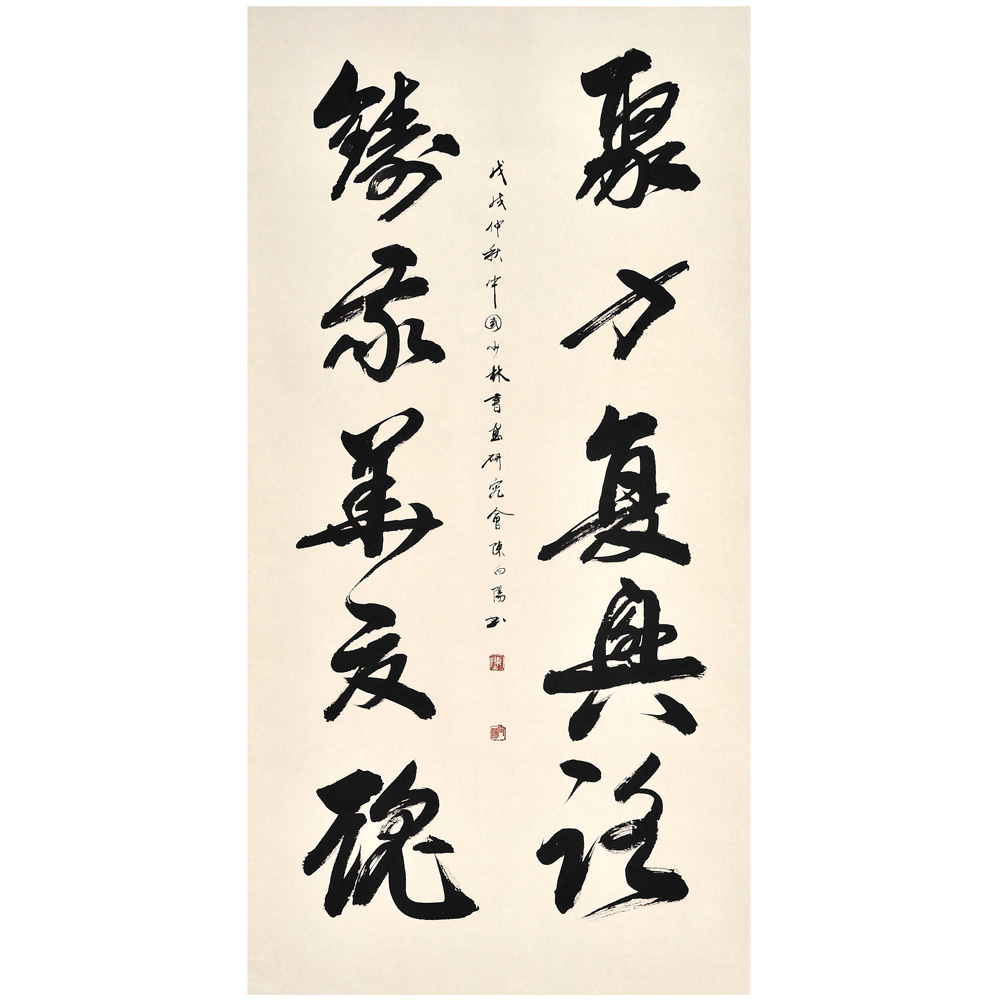 聚力复興路
鑄我華夏魂
戊戌仲秋中國少林書畫研究會陳向陽书